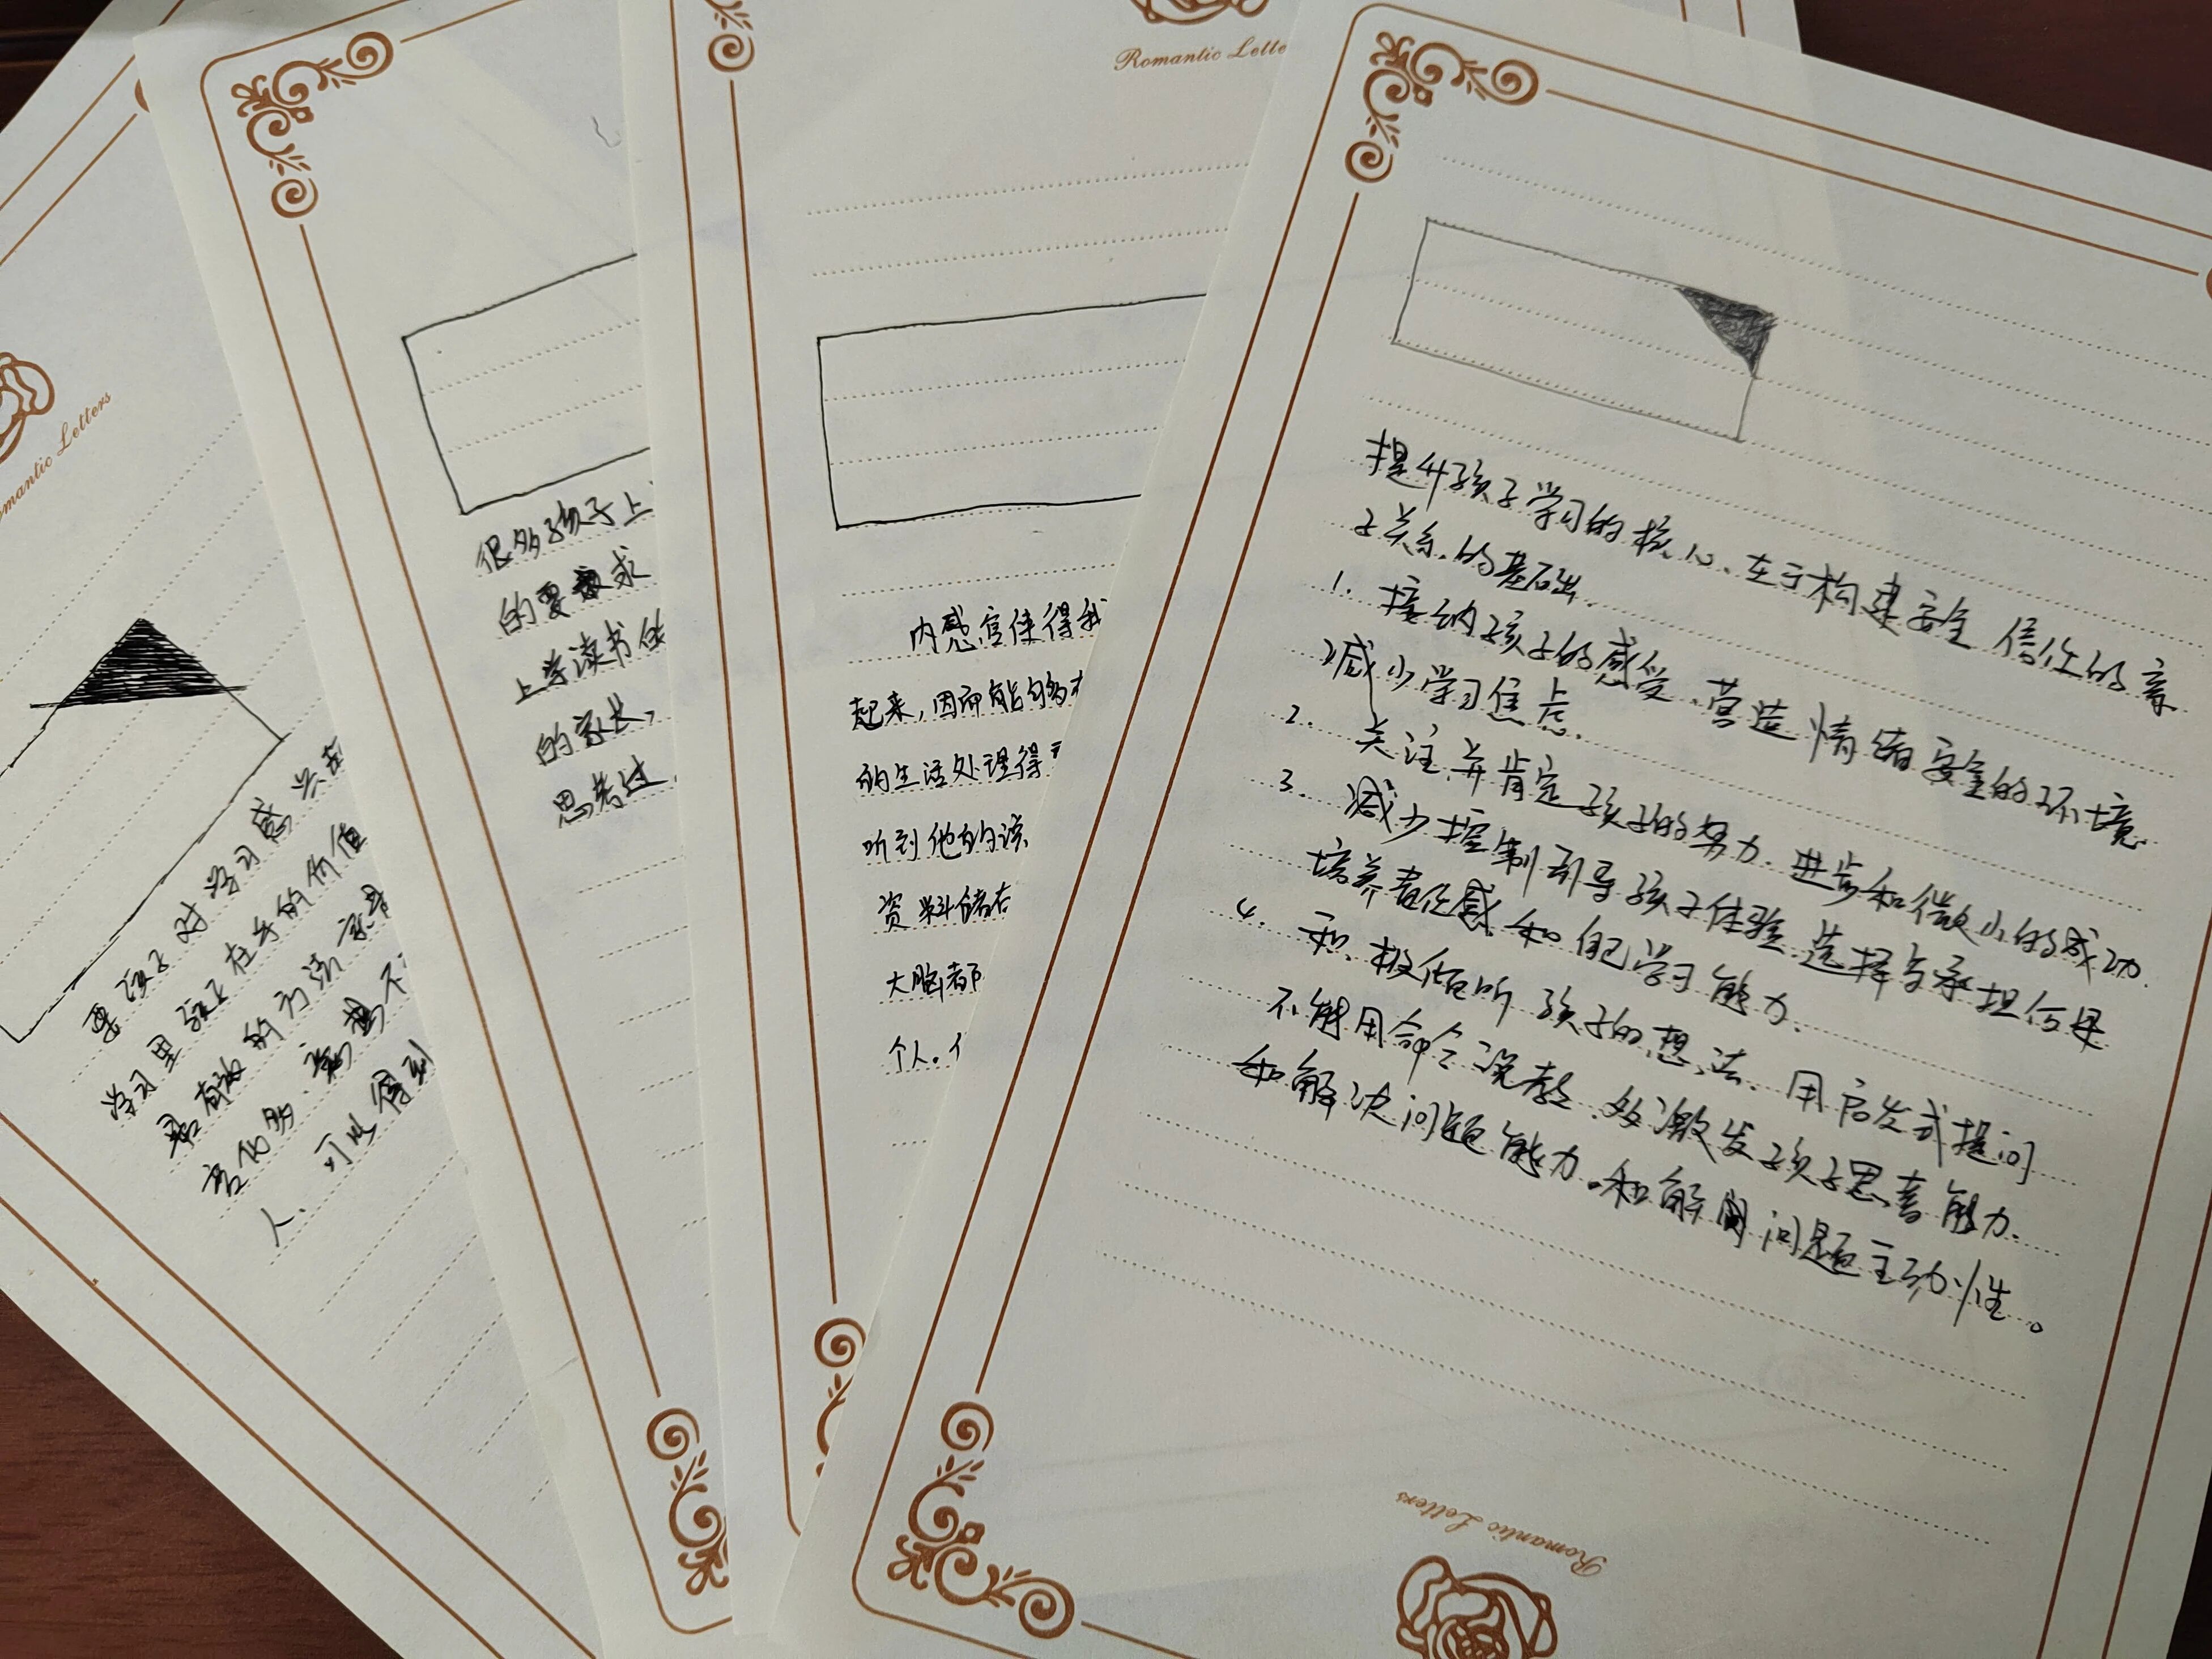 Romantic Letters
要孩子对学习感兴
学习里孩子在乎的价值
最有效的方法就是
人.可以得到
很多孩子上
的要求
上学读书
的家长，
思考过
Romantic Lette
内感官使得我
起来，因而能够
的生活处理得
听到他的谈
资料储存
大脑都
个人.
提升孩子学习的核心、在于构建安全信任的亲
子关系.的基础.
1. 接纳孩子的感受、营造情绪安全的环境.
减少学习焦虑.
2. 关注.并肯定孩子的努力.进步和微小的成功.
3. 减少控制引导孩子体验.选择与承担后果
培养责任感.和自己学习能力.
4. 和.极倾听孩子的想法、用启发式提问
不能用命令说教.多激发孩子思考能力.
和解决问题能力.和解问题主动性。
Romantic Letters